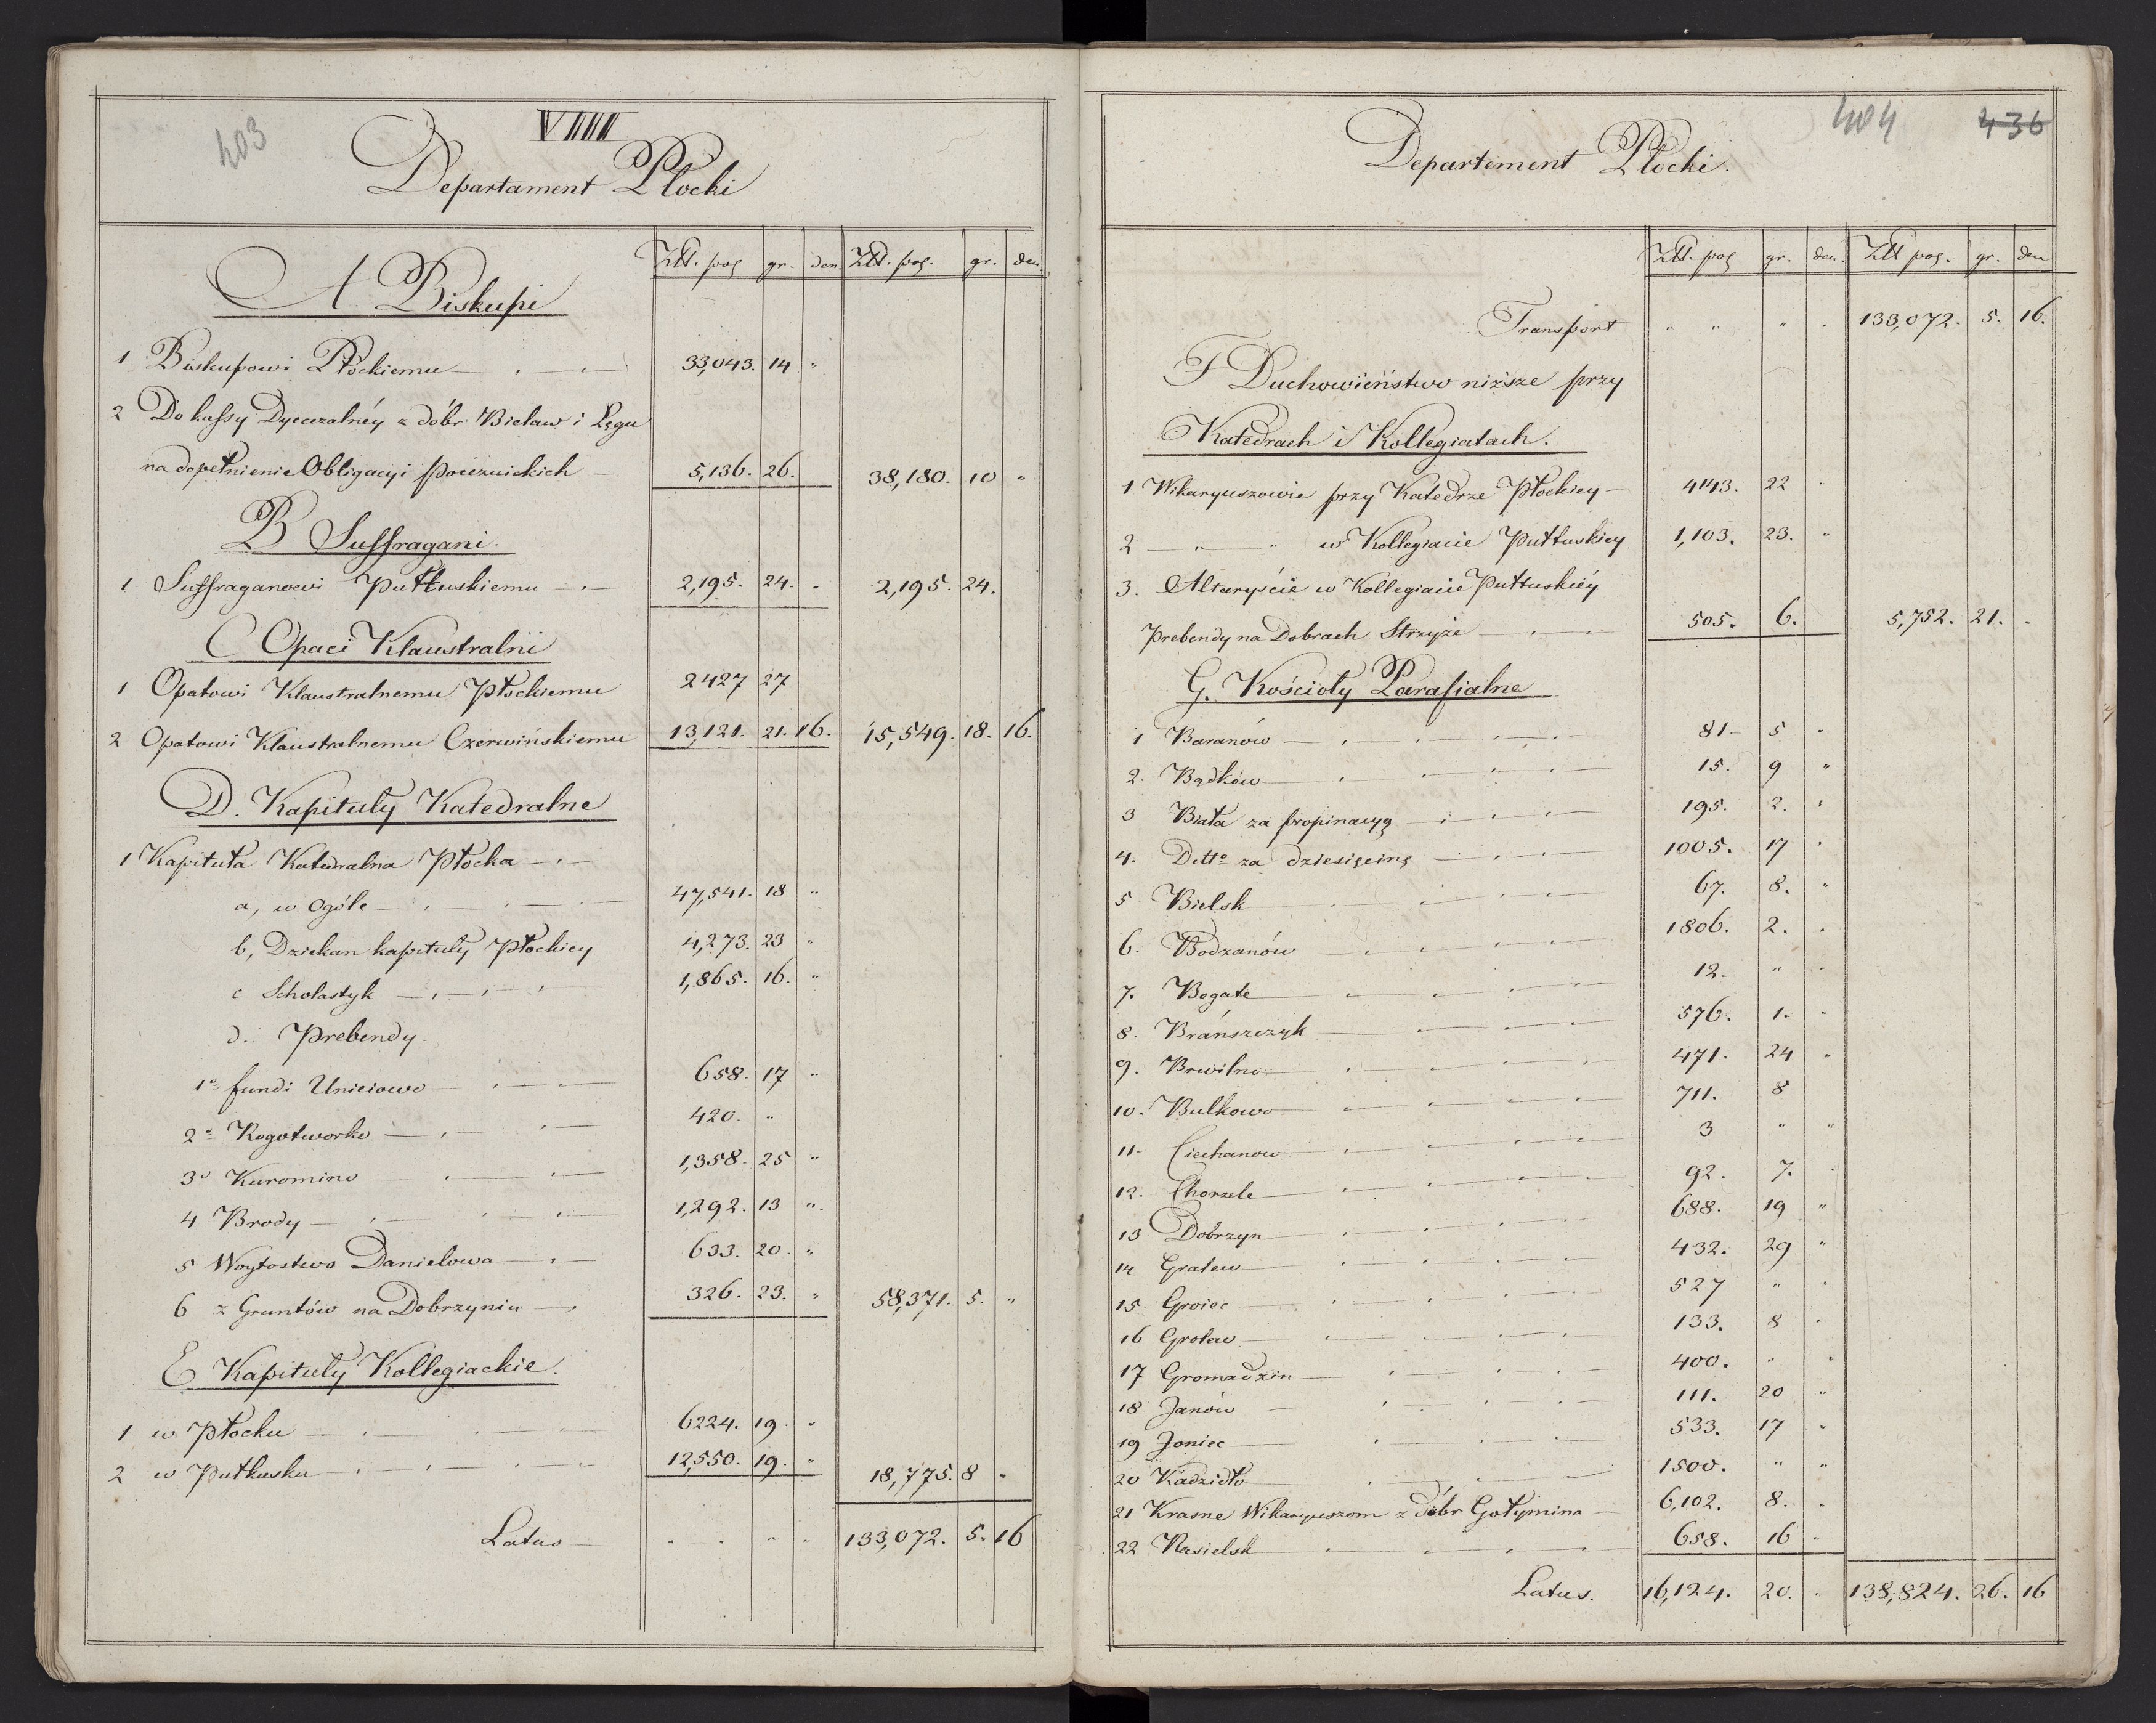 403
VIIII
Departament Płocki
Złt. pog gr. den. Złt. pog. gr. den.
A. Biskupi
1 Biskupowi Płockiemu 33,043. 14 "
2 Do kassy Dyecezalnéy z dóbr Bielaw i Łęgu
na dopełnienie Obligacyi poieznickich 5,136. 26. 38,180. 10 "
B Suffragani.
1 Suffraganowi Pułtuskiemu 2,195. 24. " 2,195. 24.
C Opaci Klaustralni
1 Opatowi Klaustralnemu Płockiemu 2427 27
2 Opatowi Klaustralnemu Czerwińskiemu 13,121. 21. 16. 15,549. 18. 16.
D. Kapituły Katedralne
1 Kapituła Katedralna Płocka
a, w Ogóle 47,541. 18 "
b, Dziekan kapituły Płockiey 4,273. 23 "
c Scholastyk 1,865. 16. "
d. Prebendy.
1o fundi Unieiowo 658. 17 "
2o Rogotworko 420. "
3o Kuromino 1,358. 25 "
4 Brody 1,292. 13 "
5 Woytostwo Danielowa 633. 20. "
6 z Gruntów na Dobrzyniu 326. 23. " 58,371. 5. "
E Kapituły Kollegiackie.
1 w Płocku 6224. 19. "
2 w Pułtusku 12,550. 19. " 18,775. 8 "
Latus " " " 133,072. 5. 16
404 436
Departement Płocki.
Złt. pog gr. den. Złt pog. gr. den
Transport " " " " 133,072. 5. 16.
F Duchowieństwo niższe przy
Katedrach i Kollegiatach.
1 Wikaryuszowie przy Katedrze Płockiey 4143. 22 "
2 " " w Kollegiacie Pułtuskiey 1,103. 23. "
3. Altaryście w Kollegiacie Pułtuskiéy
Prebendy na Dobrach Strzyże 505. 6. 5,752. 21. "
G. Kościoły Parafialne
1 Baranów 81 5 "
2. Bądków 15. 9 "
3 Biała za propinacyą 195. 2. "
4. Ditto za dziesięcinę 1005. 17 "
5 Bielsk 67. 8. "
6. Bodzanów 1806. 2. "
7. Bogate 12. " "
8. Brańszczyk 576. 1. "
9. Brwilno 471. 24 "
10. Bulkowo 711. 8
11. Ciechanow 3 " "
12. Chorzele 92. 7. "
13 Dobrzyn 688. 19 "
14 Gralew 432. 29 "
15 Groiec 527 " "
16 Grolew 133. 8 "
17 Gromadzin 400. " "
18 Janów 111. 20 "
19 Joniec 533. 17 "
20 Kadzidło 1500. " "
21 Krasne Wikaryuszom z dóbr Gołymina 6,102. 8. "
22 Nasielsk 658. 16 "
Latus. 16,124. 20. " 138,824. 26. 16